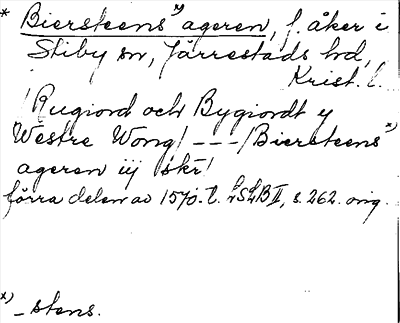 * Biersteens x) ageren, f. åker i
Stiby sn, Järrestads hd,
Krist. l.
/Rugiord och Bygiordt y
Westre Wong/ ---/Biersteens x)
ageren iij skr/
förra delen av 1570-t. LSLB II, s. 262. orig.
x) -stens.